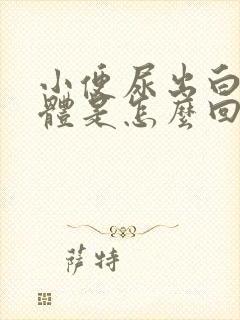 小便尿出白
體是怎麼回
萨特